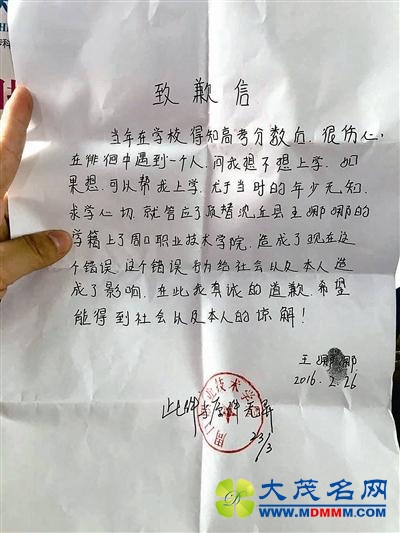 致歉信
当年在学校得知高考分数后,很伤心,
在徘徊中遇到一个人,问我想不想上学,如
果想,可以帮我上学,尤于当时的年少无知,
求学心切,就答应了顶替沈丘县王娜娜的
学籍上了周口职业技术学院,造成了现在这
个错误,这个错误行为给社会以及本人造
成了影响,在此我真诚的道歉,希望
能得到社会以及本人的谅解!
王娜娜
2016.2.26
此件与原件无异
23/3
大茂名网
WWW.MDMMM.COM